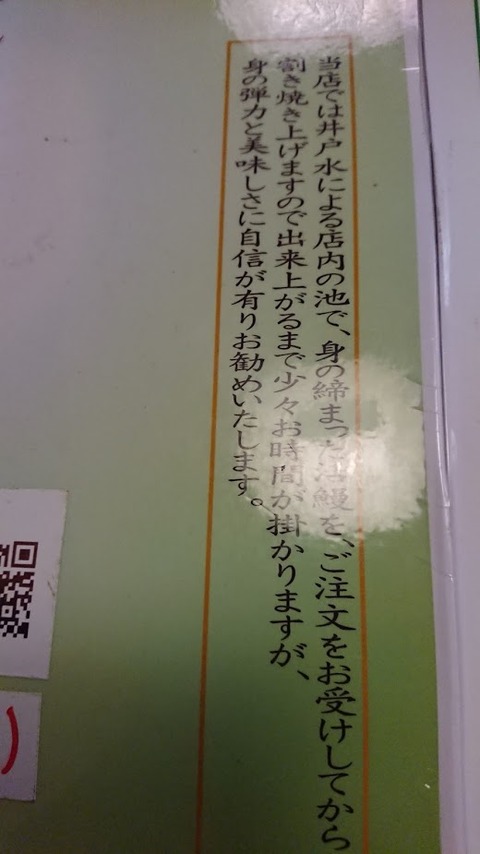 当店では井戸水による店内の池で、身の締まった活鰻を、ご注文をお受けしてから
割き焼き上げますので出来上がるまで少々お時間が掛かりますが、
身の弾力と美味しさに自信が有りお勧めいたします。
)